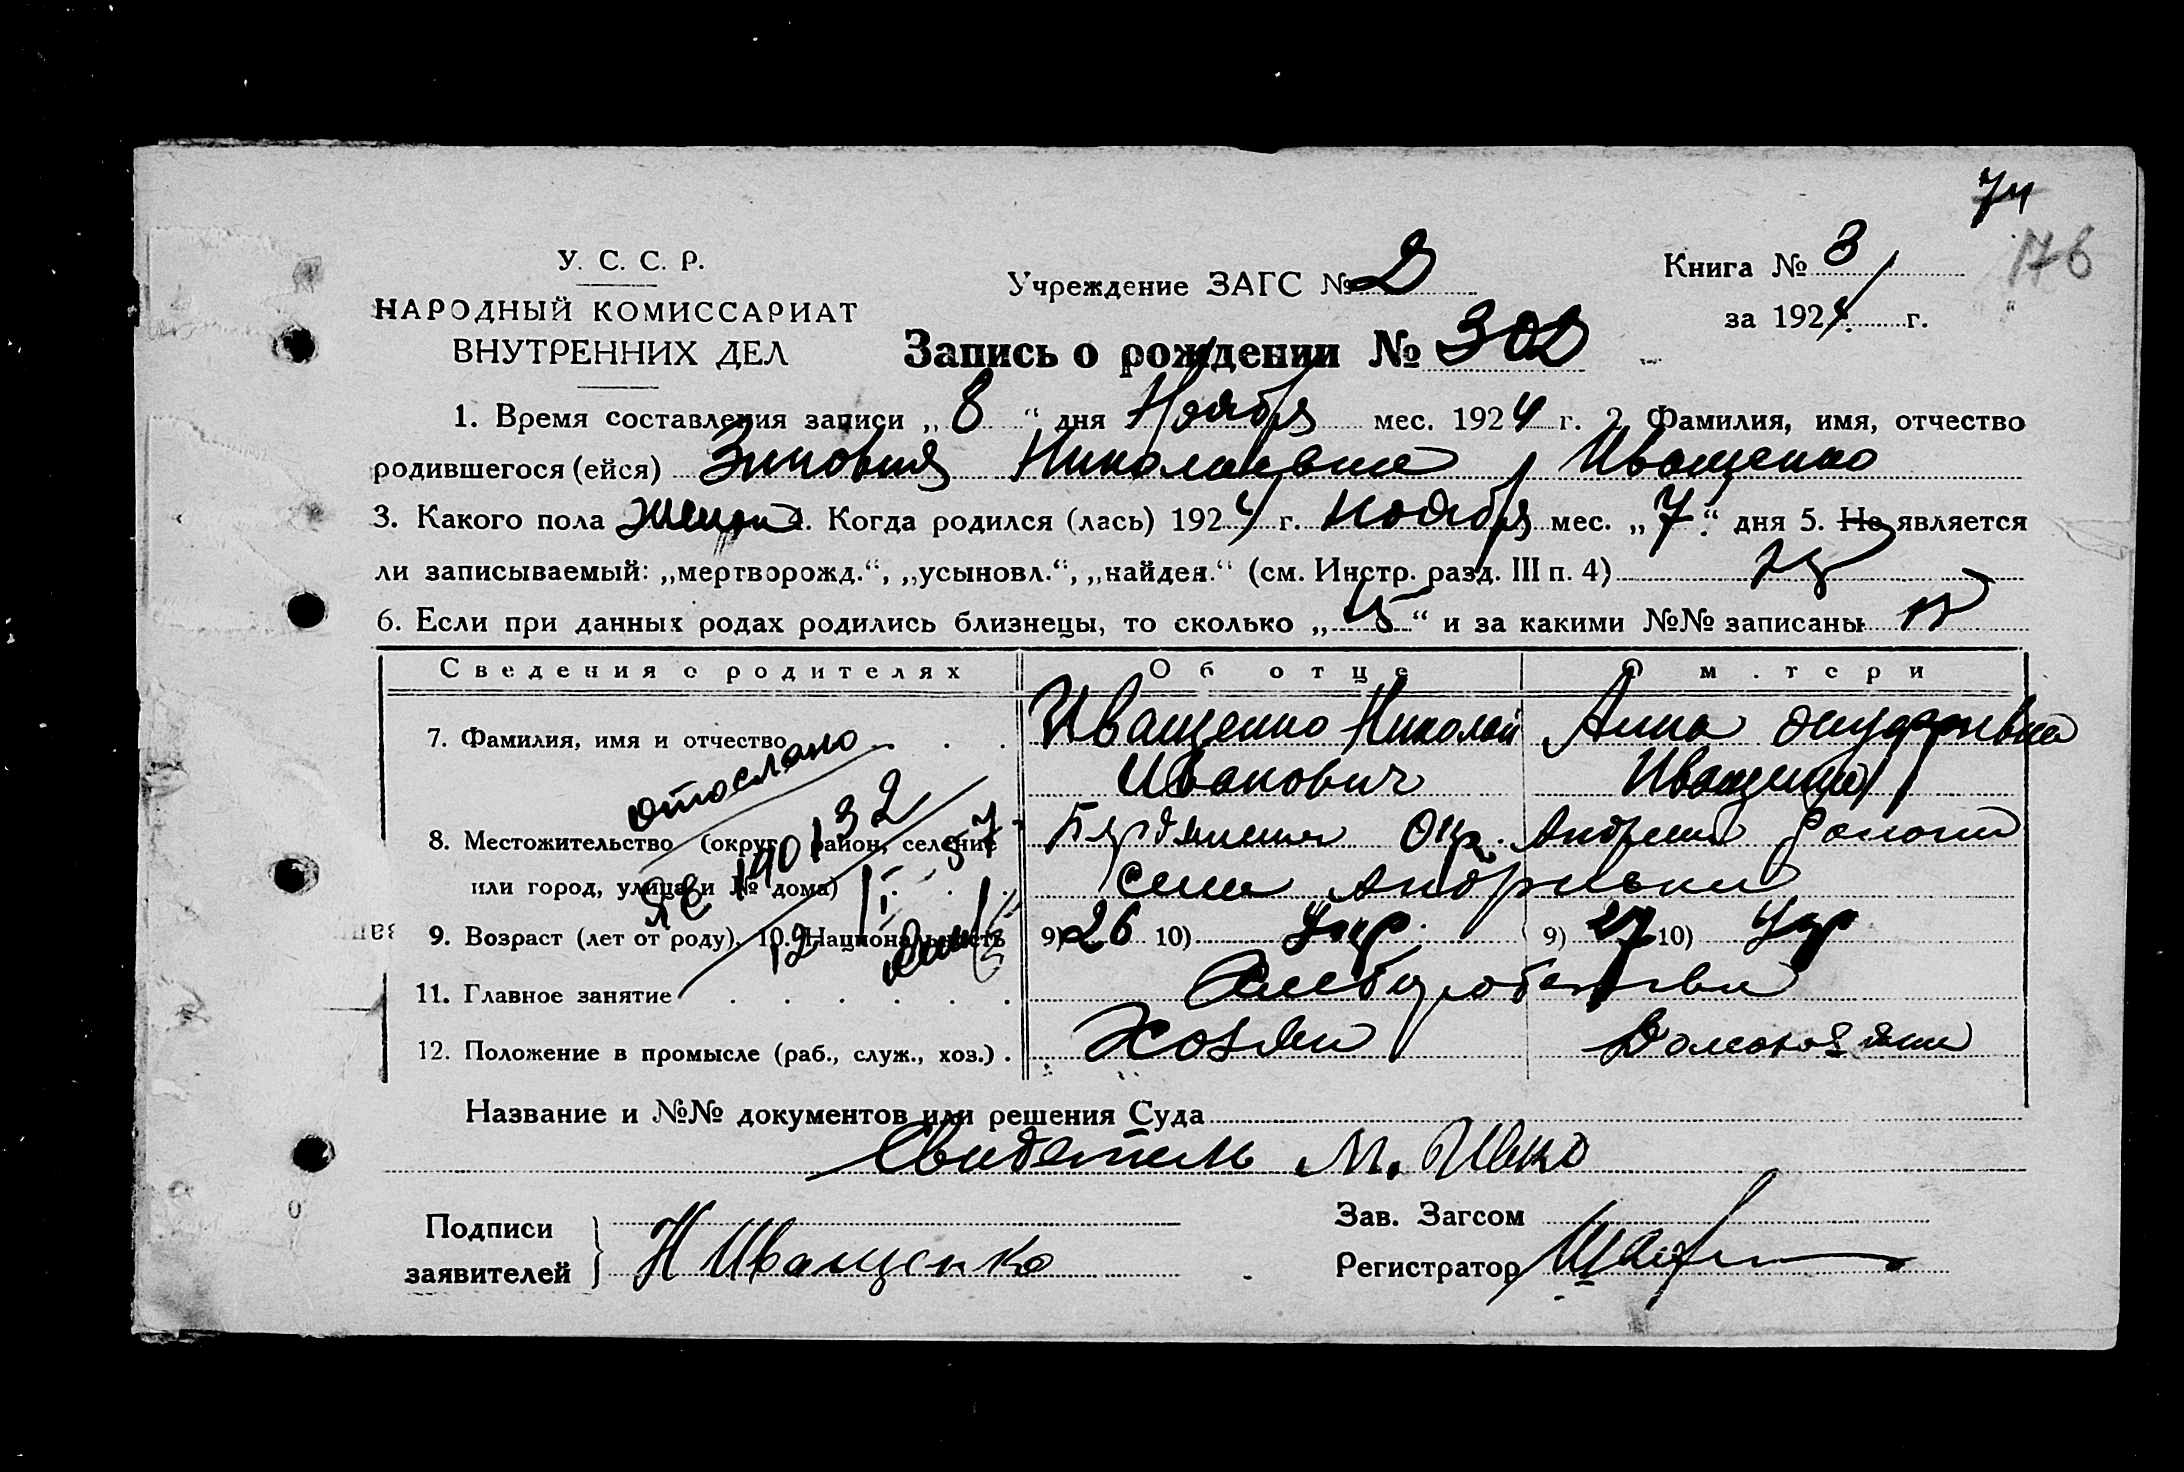 74
176
У. С. С. Р.
НАРОДНЫЙ КОМИССАРИАТ
ВНУТРЕННИХ ДЕЛ
Учреждение ЗАГС № 2
Книга № 3
за 1924 г.
Запись о рождении № 302
1. Время составления записи „8“ дня Ноября мес. 1924 г. 2. Фамилия, имя, отчество
родившегося (ейся) Зиновия Николаевна Иващенко
3. Какого пола женск 4. Когда родился (лась) 1924 г. Ноября мес. „7“ дня 5. Не является
ли записываемый: „мертворожд.“, „усыновл.“, „найден.“ (см. Инстр. разд. III п. 4)
6. Если при данных родах родились близнецы, то сколько „ “ и за какими №№ записаны
Сведения о родителях Об отце О м.тери
7. Фамилия, имя и отчество Иващенко Николай Анна
Иванович Иващенко
отослано
8. Местожительство (округ, район, селение Бердянский Окр. Андреев район
или город, улица и № дома) село Андреевка
9. Возраст (лет от роду). 10. Национальность 9) 26 10) Укр. 9) 27 10) Укр
11. Главное занятие Хлеборобство
12. Положение в промысле (раб., служ., хоз.) Хозяин Домохозяйка
Название и №№ документов или решения Суда
Свидетель М. Ивко
Подписи
заявителей Н Иващенко
Зав. Загсом
Регистратор